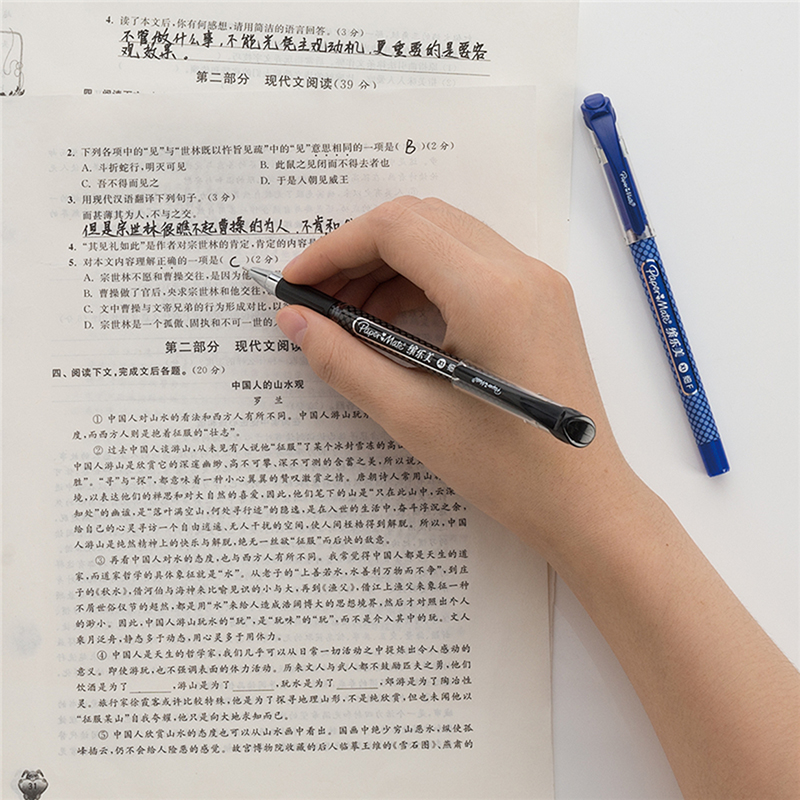 4. 读了本文后,你有何感想,请用简洁的语言回答。(3分)
不管做什么事,不能光凭主观动机,更重要的是要客
观效果。
第二部分 现代文阅读(39分)
2. 下列各项中的“见”与“世林既以忤旨见疏”中的“见”意思相同的一项是( B )(2分)
A. 斗折蛇行,明灭可见 B. 此鼠之见闭而不得去者也
C. 吾不得而见之 D. 于是入朝见威王
3. 用现代汉语翻译下列句子。(3分)
而甚薄其为人,不与之交。
但是宗世林很瞧不起曹操的为人,不肯和
4. “其见礼如此”是作者对宗世林的肯定,肯定的内容是
5. 对本文内容理解正确的一项是( C )(2分)
A. 宗世林不愿和曹操交往,是因为他
B. 曹操做了官后,央求宗世林和他交往,
C. 文中曹操与文帝兄弟的行为形成对比,以
D. 宗世林是一个孤傲、固执和不可一世的人
第二部分 现代文阅读
四、阅读下文,完成文后各题。(20分)
中国人的山水观
罗 兰
① 中国人对山水的看法和西方人有所不同。中国人游山玩水
度,而西方人则是抱着征服的“壮志”。
② 过去中国人谈游山,从未见有人说他“征服”了某个冰封雪冻的高山
中国人游山是欣赏它的深邃幽渺、高不可攀、深不可测的含蓄之美,所以说
胜”。“寻”与“探”,都意味着一种小心翼翼的赞叹激赏之情。唐朝诗人常用山
境,以表达他们的禅思和对大自然的喜爱,因此,他们笔下的山是“只在此山中,云深
知处”的幽谈,是“落叶满空山,何处寻行迹”的隐逸,是在入世的生活中,奋斗浮沉之余,
给自己的心灵寻访一个自由逍遥、无人干扰的空间,使人间桎梏得到解脱。所以,中国
人游山是纯然精神上的快乐与解脱,绝无一丝欲“征服”而后快的敌意。
③ 再看中国人对水的态度,也与西方人有所不同。我常觉得中国人都是天生的道
家,而道家哲学的具体象征就是“水”。从老子的“上善若水,水善利万物而不争”,到庄
子的《秋水》,借河伯与海神来比喻见识的小与大,再到《渔父》,借江上渔父来象征一种
不屑世俗仪节的超然,都是用“水”来给人造成浩阔博大的思想境界,然后才对照出个人
的渺小。因此,中国人游山玩水的“玩”,是“玩味”的“玩”,而不是介入其中的玩。文人
乘月泛舟,静态多于动态,用心灵多于用体力。
④ 中国人是天生的哲学家,我们几乎可以从日常一切活动之中提炼出令人感动的
意义。即使游玩,也不强调表面的体力活动。历来文人与武人都不鼓励匹夫之勇,他们
饮酒是为了______,游山是为了______,玩水是为了______,郊游是为了陶冶性
灵。旅行家徐霞客或许比较特殊,他是为了探寻地理山形,不是纯欣赏,但也未闻他以
“征服某山”自我夸耀,他只是向大地求知而已。
⑤ 中国人欣赏山水的态度也可以从山水画中看出。国画中绝少穷山恶水,纵使孤
峰插云,仍不会给人险恶的感觉。故宫博物院收藏的后人临摹王维的《雪石图》、燕肃的
31
Paper Mate 缤乐美 0.5 细F
Paper Mate
Paper Mate
Paper Mate 缤乐美 0.5 细F